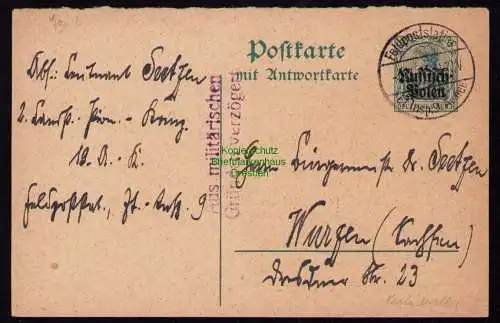 Postkarte
mit Antwortkarte
Feldpoststation
Russisch-
Polen
Abs: Leutnant Seetzen
2. Landst. Pion. - Komp.
10. A. K.
Feldpoststat. 9
aus militärischen
Gründen verzögert
Kopierschutz
Briefmarkenhaus
Herrn Bürgermeister Dr. Seetzen
Wurzen (Sachsen)
Dresdner Str. 23